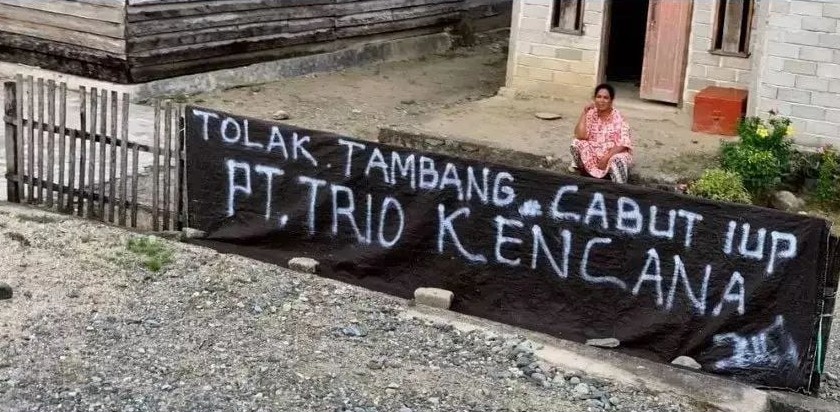 TOLAK. TAMBANG. CABUT IUP
PT. TRIO KENCANA